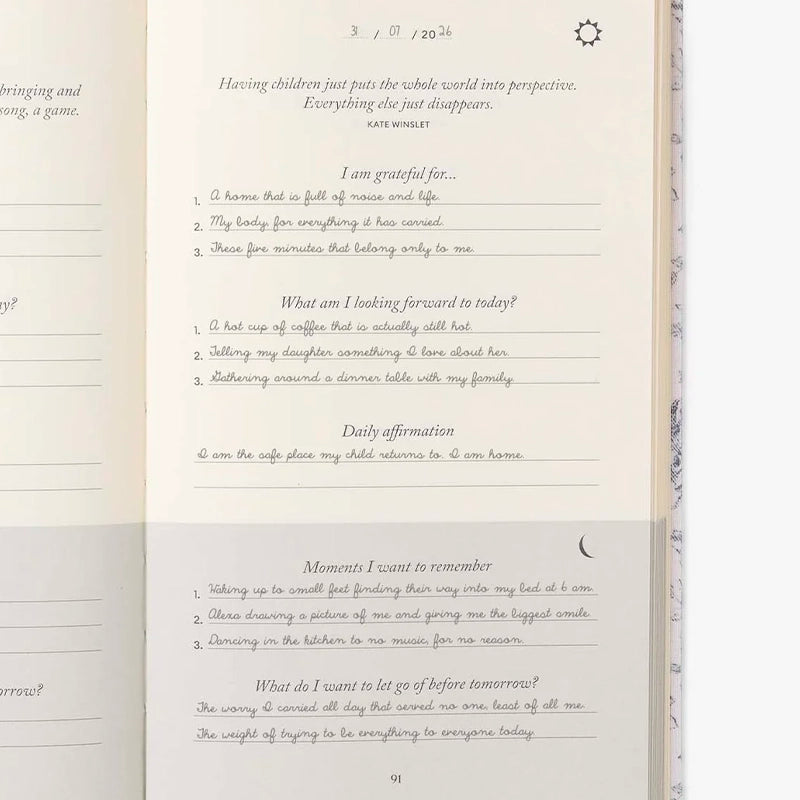 bringing and
song, a game.
ay?
orrow?
31 / 07 / 2026
Having children just puts the whole world into perspective.
Everything else just disappears.
KATE WINSLET
I am grateful for...
1. A home that is full of noise and life.
2. My body, for everything it has carried.
3. These five minutes that belong only to me.
What am I looking forward to today?
1. A hot cup of coffee that is actually still hot.
2. Telling my daughter something I love about her.
3. Gathering around a dinner table with my family.
Daily affirmation
I am the safe place my child returns to. I am home.
Moments I want to remember
1. Waking up to small feet finding their way into my bed at 6 am.
2. Alexa drawing a picture of me and giving me the biggest smile.
3. Dancing in the kitchen to no music, for no reason.
What do I want to let go of before tomorrow?
The worry I carried all day that served no one, least of all me.
The weight of trying to be everything to everyone today.
91